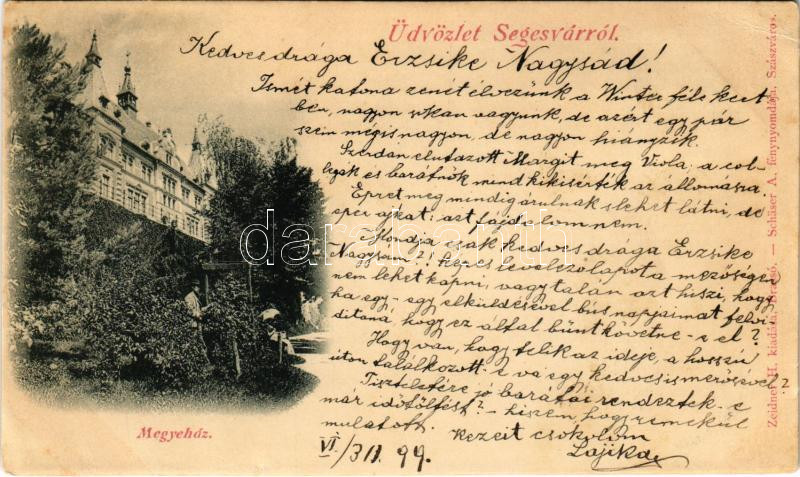 Üdvözlet Segesvárról.
Kedves drága Erzsike Nagysád!
Ismét katona zenét élvezünk a Winter féle kert
ben, nagyon sokan vagyunk, de azért egy pár
szem mégis nagyon, de nagyon hiányzik.
Szerdán elutazott Margit meg Viola; a col-
legák és barátnők mind kikisérték az állomásra.
Epret még mindig árulnak s lehet látni, de
eper ajkat, azt fájdalom nem.
Mondja csak kedves drága Erzsike
Nagysám?! képes levelezőlapot a mezőségen
nem lehet kapni, vagy talán azt hiszi, hogy
ha egy-egy elküldésével bús napjaimat felvi
ditaná, hogy ez által bűnt követne-e el?
Hogy van, hogy telik az ideje, a hosszú
úton találkozott-e va egy kedves ismerősével?
Tiszteletére jó barátai rendeztek-e
már időtöltést? - hiszen, hogy remekül
mulatott.
Kezeit csókolom
Lajika
VI/30. 99.
Megyeház.
Zeidner H. kiadása, Brassó. — Schäser A. fénynyomdája, Szászváros.
darabanth